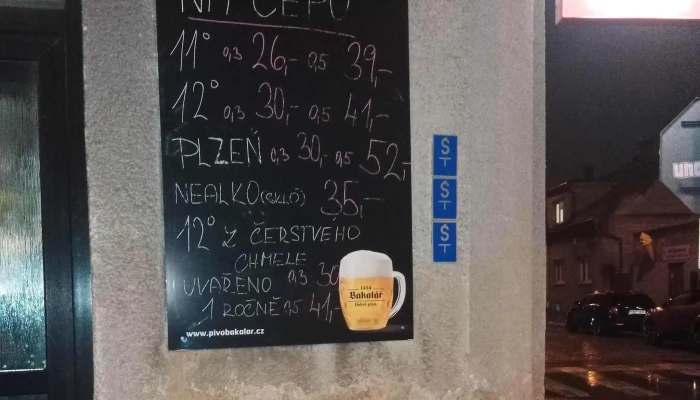 NA ČEPU
11° 0,3 26,- 0,5 39,-
12° 0,3 30,- 0,5 41,-
PLZEŇ 0,3 30,- 0,5 52,-
NEALKO (SKLO) 35,-
12° Z ČERSTVÉHO
CHMELE
UVAŘENO 0,3 30
1 ROČNĚ 0,5 41,-
1454
Bakalář
www.pivobakalar.cz
Š
T
Š
T
Š
T